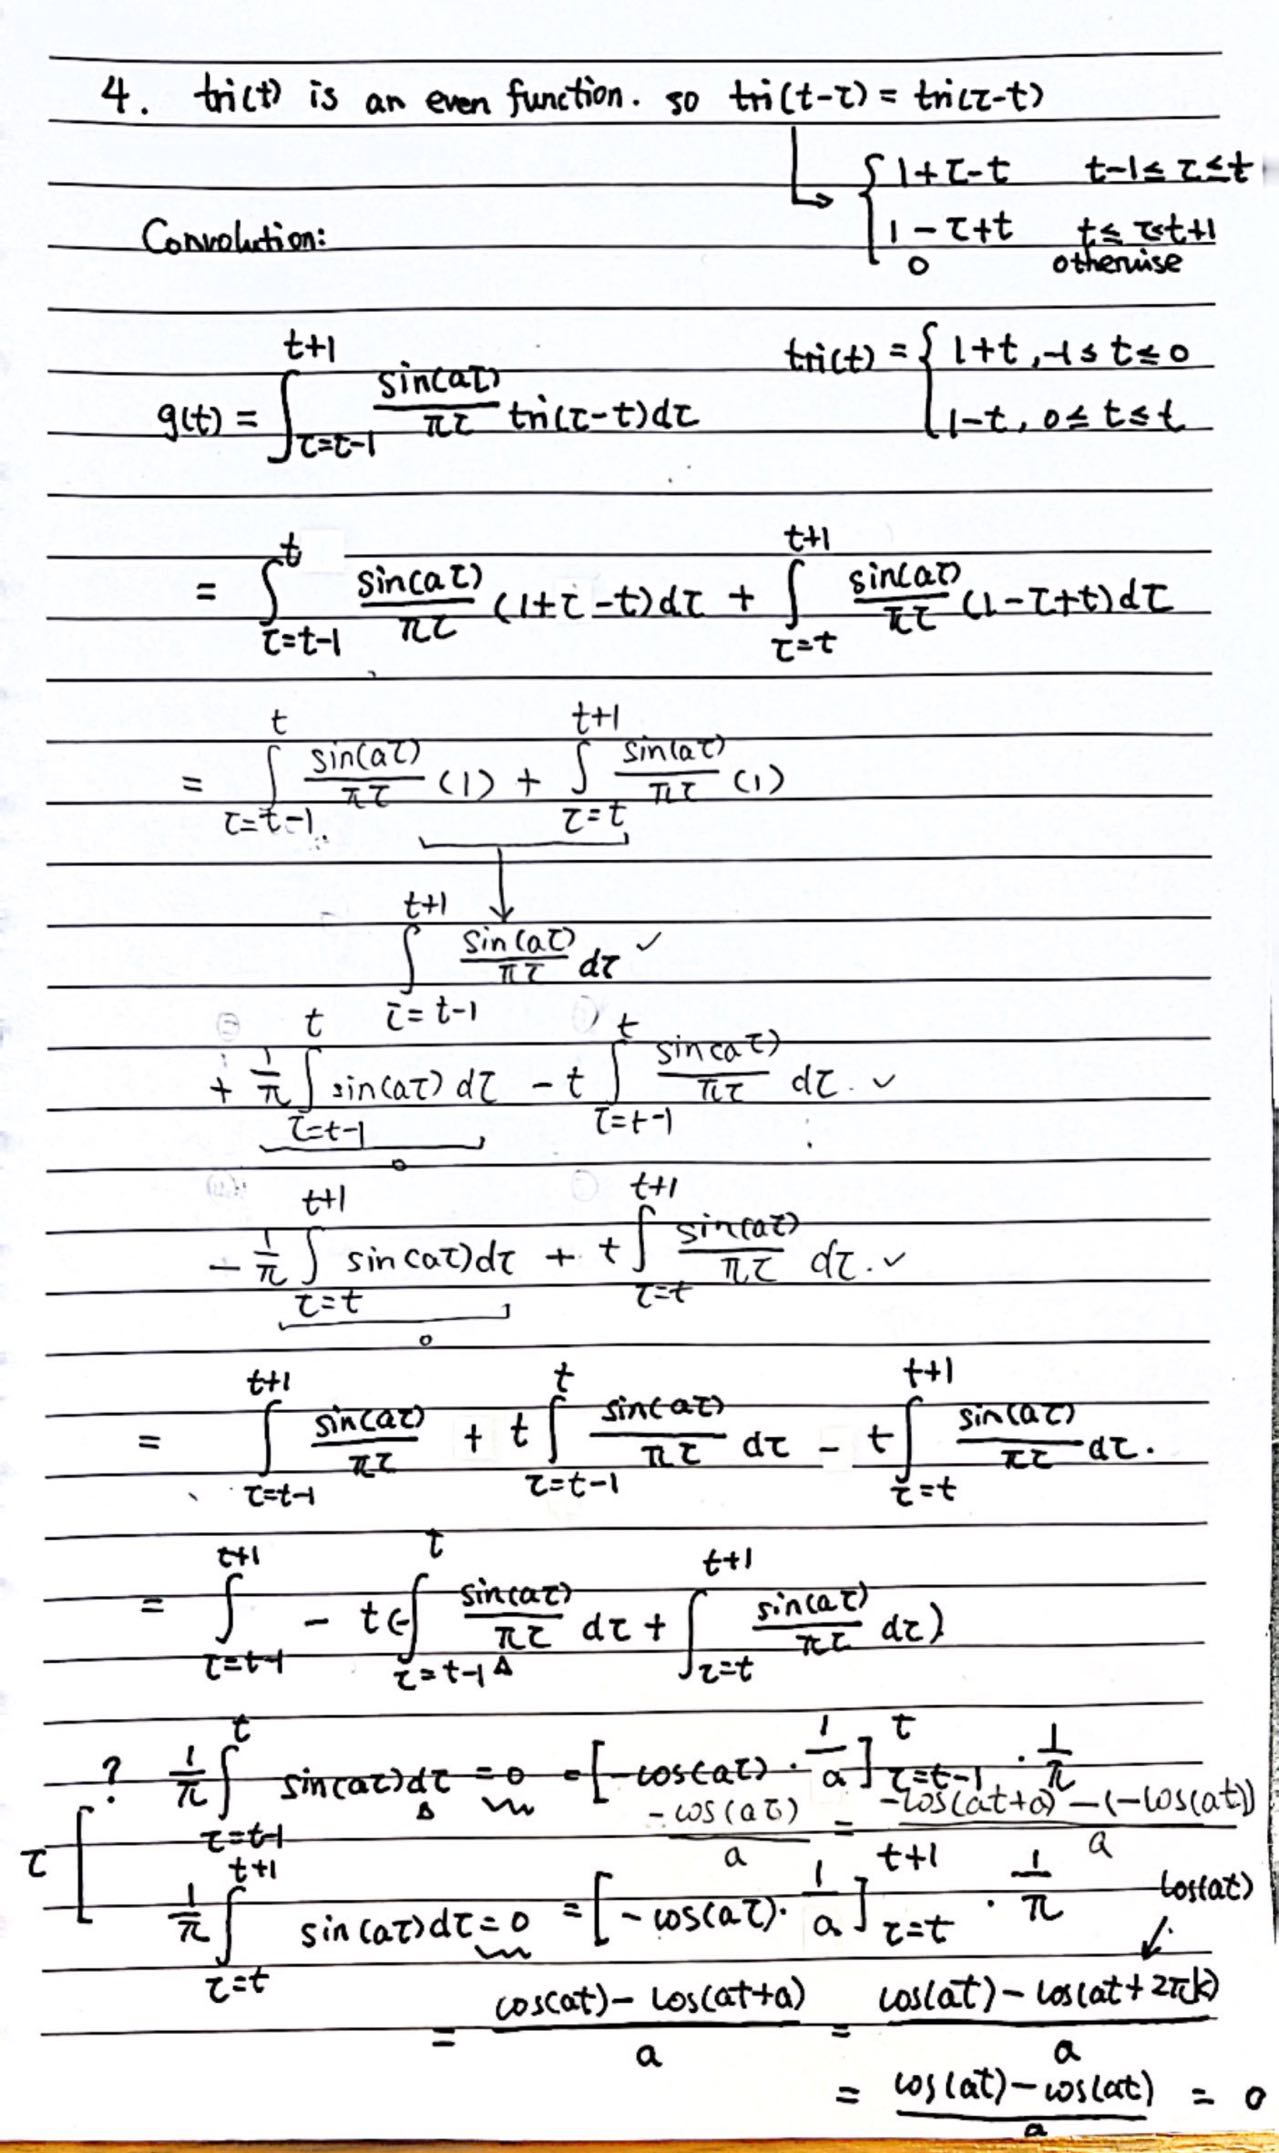 4. tri(t) is an even function. so tri(t-τ) = tri(τ-t)
{ 1+τ-t t-1≤ τ ≤t
1-τ+t t≤ τ≤t+1
0 otherwise
Convolution:
g(t) = ∫_{τ=t-1}^{t+1} sin(aτ)/πτ tri(τ-t)dτ
tri(t) = { 1+t, -1≤ t≤0
1-t, 0≤ t≤t
= ∫_{τ=t-1}^{t} sin(aτ)/πτ (1+τ-t)dτ + ∫_{τ=t}^{t+1} sin(aτ)/πτ (1-τ+t)dτ
= ∫_{τ=t-1}^{t} sin(aτ)/πτ (1) + ∫_{τ=t}^{t+1} sin(aτ)/πτ (1)
∫_{τ=t-1}^{t+1} sin(aτ)/πτ dτ ✓
+ 1/π ∫_{τ=t-1}^{t} sin(aτ) dτ - t ∫_{τ=t-1}^{t} sin(aτ)/πτ dτ. ✓
0
- 1/π ∫_{τ=t}^{t+1} sin(aτ)dτ + t ∫_{τ=t}^{t+1} sin(aτ)/πτ dτ. ✓
0
= ∫_{τ=t-1}^{t+1} sin(aτ)/πτ + t ∫_{τ=t-1}^{t} sin(aτ)/πτ dτ - t ∫_{τ=t}^{t+1} sin(aτ)/πτ dτ.
= ∫_{τ=t-1}^{t+1} - t(-∫_{τ=t-1}^{t} sin(aτ)/πτ dτ + ∫_{τ=t}^{t+1} sin(aτ)/πτ dτ)
? 1/π ∫_{τ=t-1}^{t} sin(aτ)dτ = 0 = [-cos(aτ) · 1/a]_{τ=t-1}^{t} · 1/π
-cos(aτ)/a = -cos(at+a) - (-cos(at))/a
τ
1/π ∫_{τ=t}^{t+1} sin(aτ)dτ = 0 = [-cos(aτ) · 1/a]_{τ=t}^{t+1} · 1/π cos(at)
= cos(at) - cos(at+a)/a = cos(at) - cos(at+2πk)/a
= cos(at) - cos(at)/a = 0